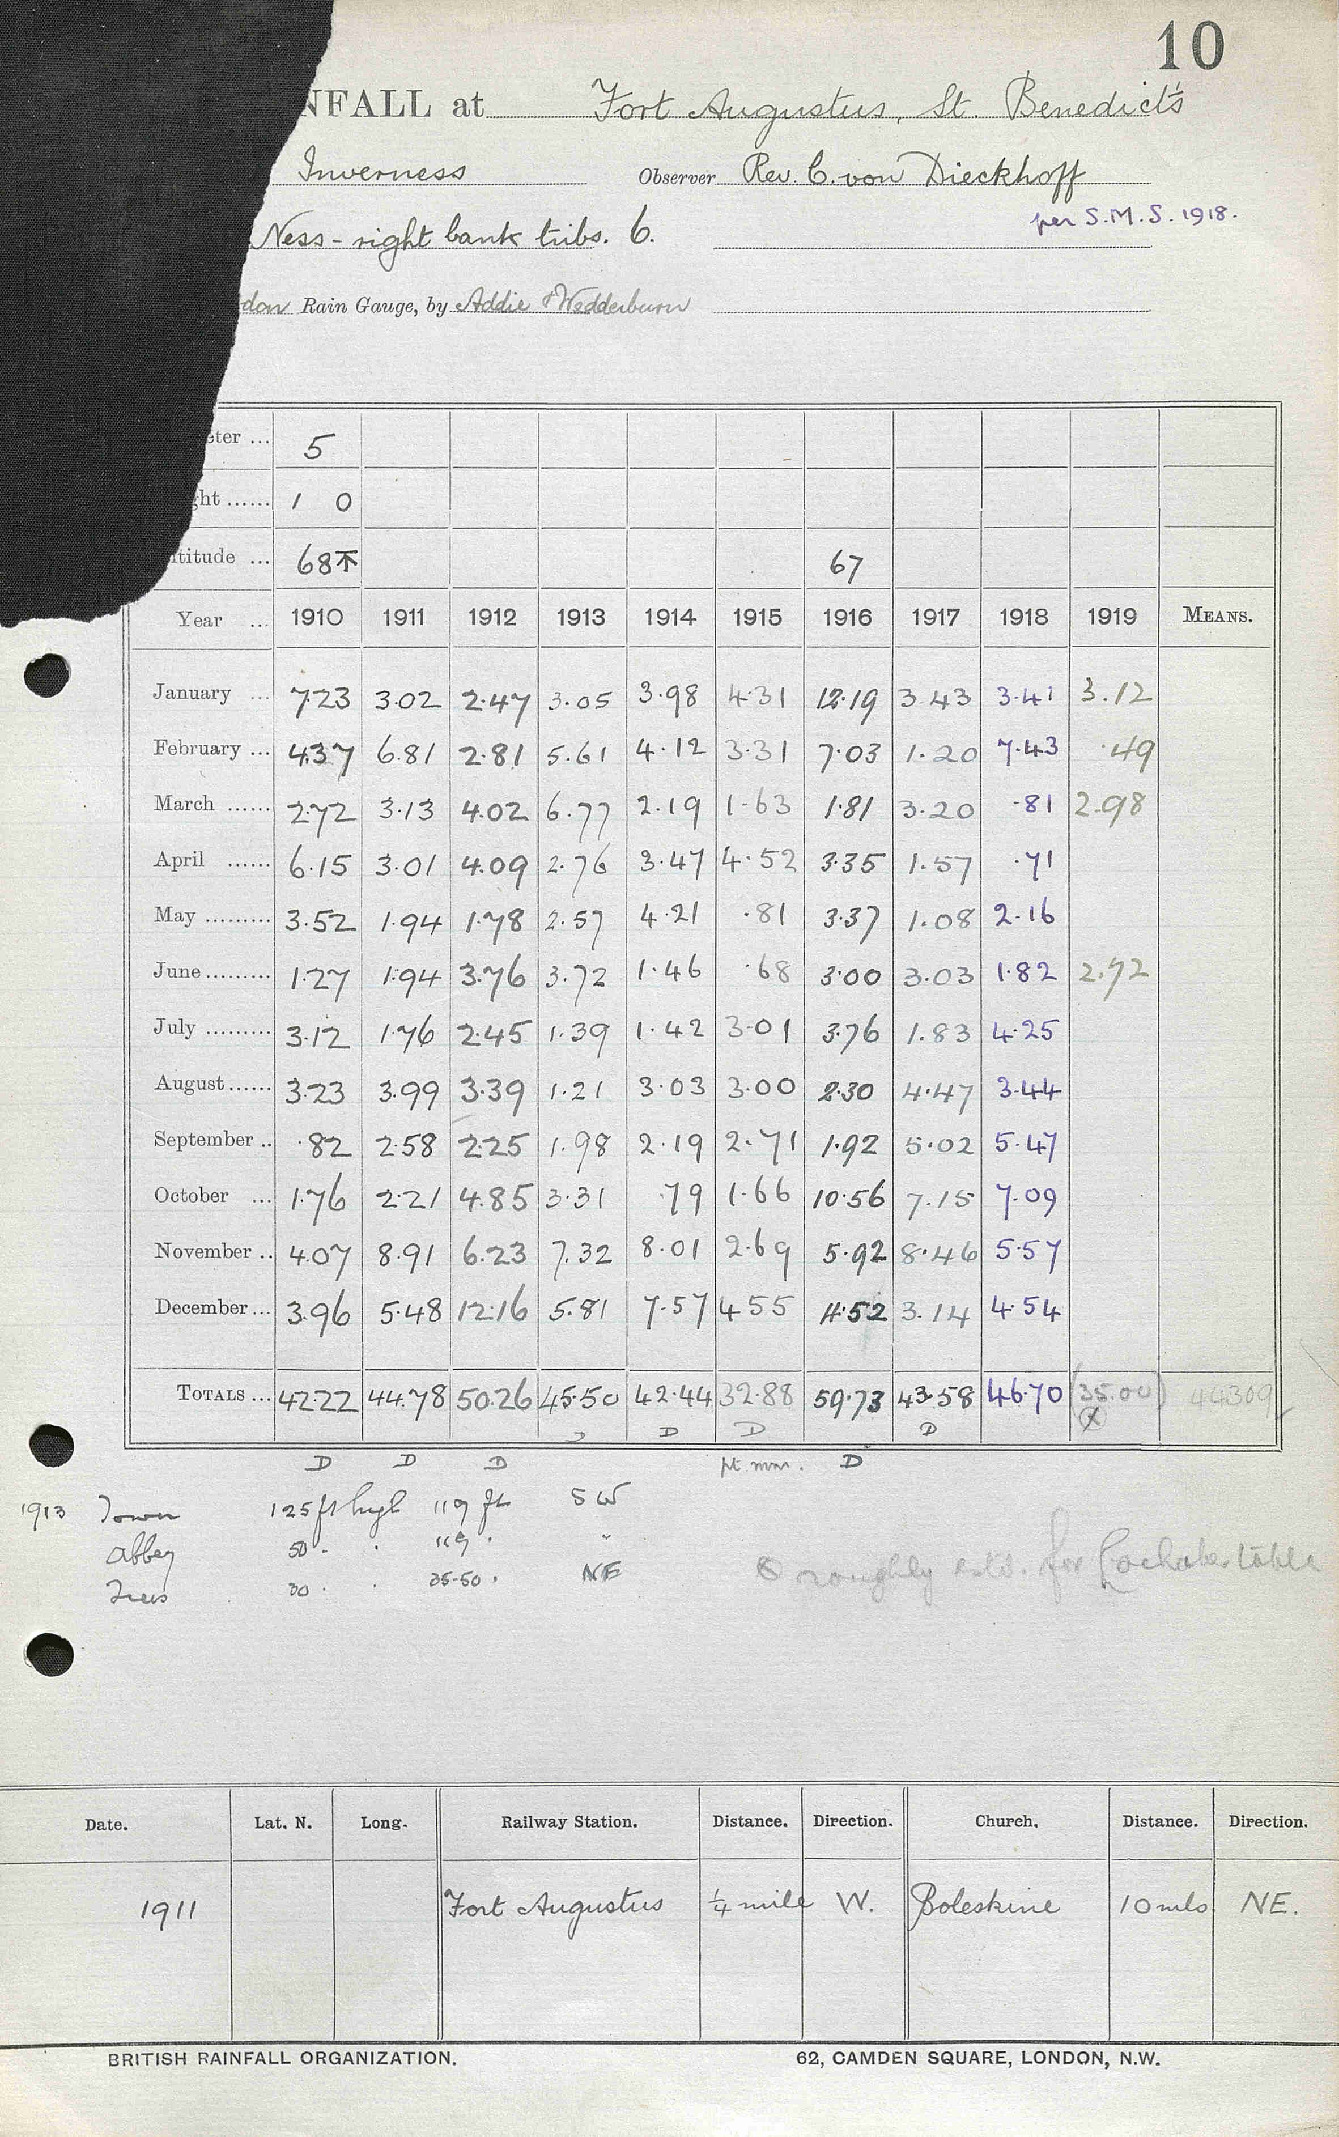 10
NFALL at Fort Augustus, St. Benedict's
Inverness Observer Rev. C. von Dieckhoff
per S.M.S. 1918.
Ness - right bank tribs. 6.
don Rain Gauge, by Addie & Wedderburn
eter ... 5
ght ...... 1 0
ltitude ... 68 67
Year ... 1910 1911 1912 1913 1914 1915 1916 1917 1918 1919 MEANS.
January ... 7.23 3.02 2.47 3.05 3.98 4.31 12.19 3.43 3.41 3.12
February ... 4.37 6.81 2.81 5.61 4.12 3.31 7.03 1.20 7.43 .49
March ...... 2.72 3.13 4.02 6.77 2.19 1.63 1.81 3.20 .81 2.98
April ...... 6.15 3.01 4.09 2.76 3.47 4.52 3.35 1.57 .71
May ......... 3.52 1.94 1.78 2.57 4.21 .81 3.37 1.08 2.16
June ......... 1.27 1.94 3.76 3.72 1.46 .68 3.00 3.03 1.82 2.72
July ......... 3.12 1.76 2.45 1.39 1.42 3.01 3.76 1.83 4.25
August ...... 3.23 3.99 3.39 1.21 3.03 3.00 2.30 4.47 3.44
September .. .82 2.58 2.25 1.98 2.19 2.71 1.92 5.02 5.47
October ... 1.76 2.21 4.85 3.31 .79 1.66 10.56 7.15 7.09
November .. 4.07 8.91 6.23 7.32 8.01 2.69 5.92 8.46 5.57
December ... 3.96 5.48 12.16 5.81 7.57 4.55 4.52 3.14 4.54
TOTALS ... 42.22 44.78 50.26 45.50 42.44 32.88 59.73 43.58 46.70 (35.00) 44309
D D D
D D D pt. mm. D
1913 Tower 125 ft high 119 ft SW
Abbey 50 " " 119 " "
Trees 30 " " 35-50 " NE
roughly estd. for Lochaber table
Date. Lat. N. Long. Railway Station. Distance. Direction. Church. Distance. Direction.
1911 Fort Augustus ¼ mile W. Boleskine 10 mls NE.
BRITISH RAINFALL ORGANIZATION. 62, CAMDEN SQUARE, LONDON, N.W.